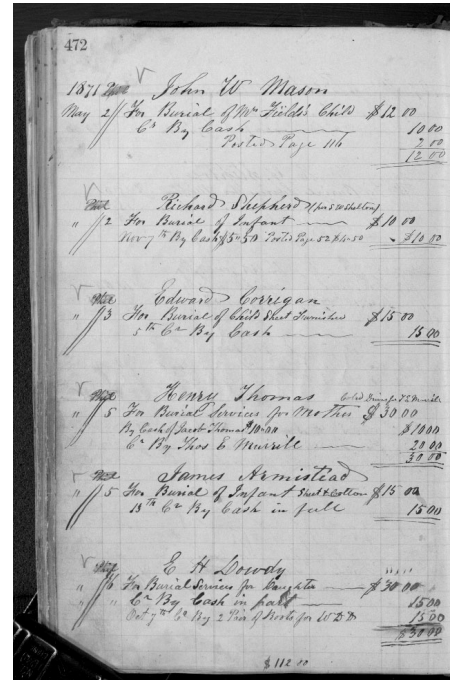 472
1871 John W Mason
May 2 For Burial of Mrs Fields's Child $12 00
Cr By Cash 10 00
Posted Page 116 2 00
12 00
Richard Shepherd (per S W Shelton)
" 2 For Burial of Infant $10 00
Nov 7th By Cash $5.50 Posted Page 52 $4.50 $10 00
Edward Corrigan
" 3 For Burial of Child Sheet Furnished $15 00
5th Cr By Cash 15 00
Henry Thomas
" 5 For Burial Services for Mother $30 00
By Cash of Jacob Thomas $10.00 $10 00
Cr By Thos E Murrill 20 00
30 00
James Armistead
" 5 For Burial of Infant Sheet & Cotton $15 00
13th Cr By Cash in full 15 00
E H Dowdy
" 6 For Burial Services for Daughter $30 00
" " Cr By Cash in part 15 00
Oct 7th Cr By 2 Pair of Boots for W D D 15 00
$30 00
$112 00